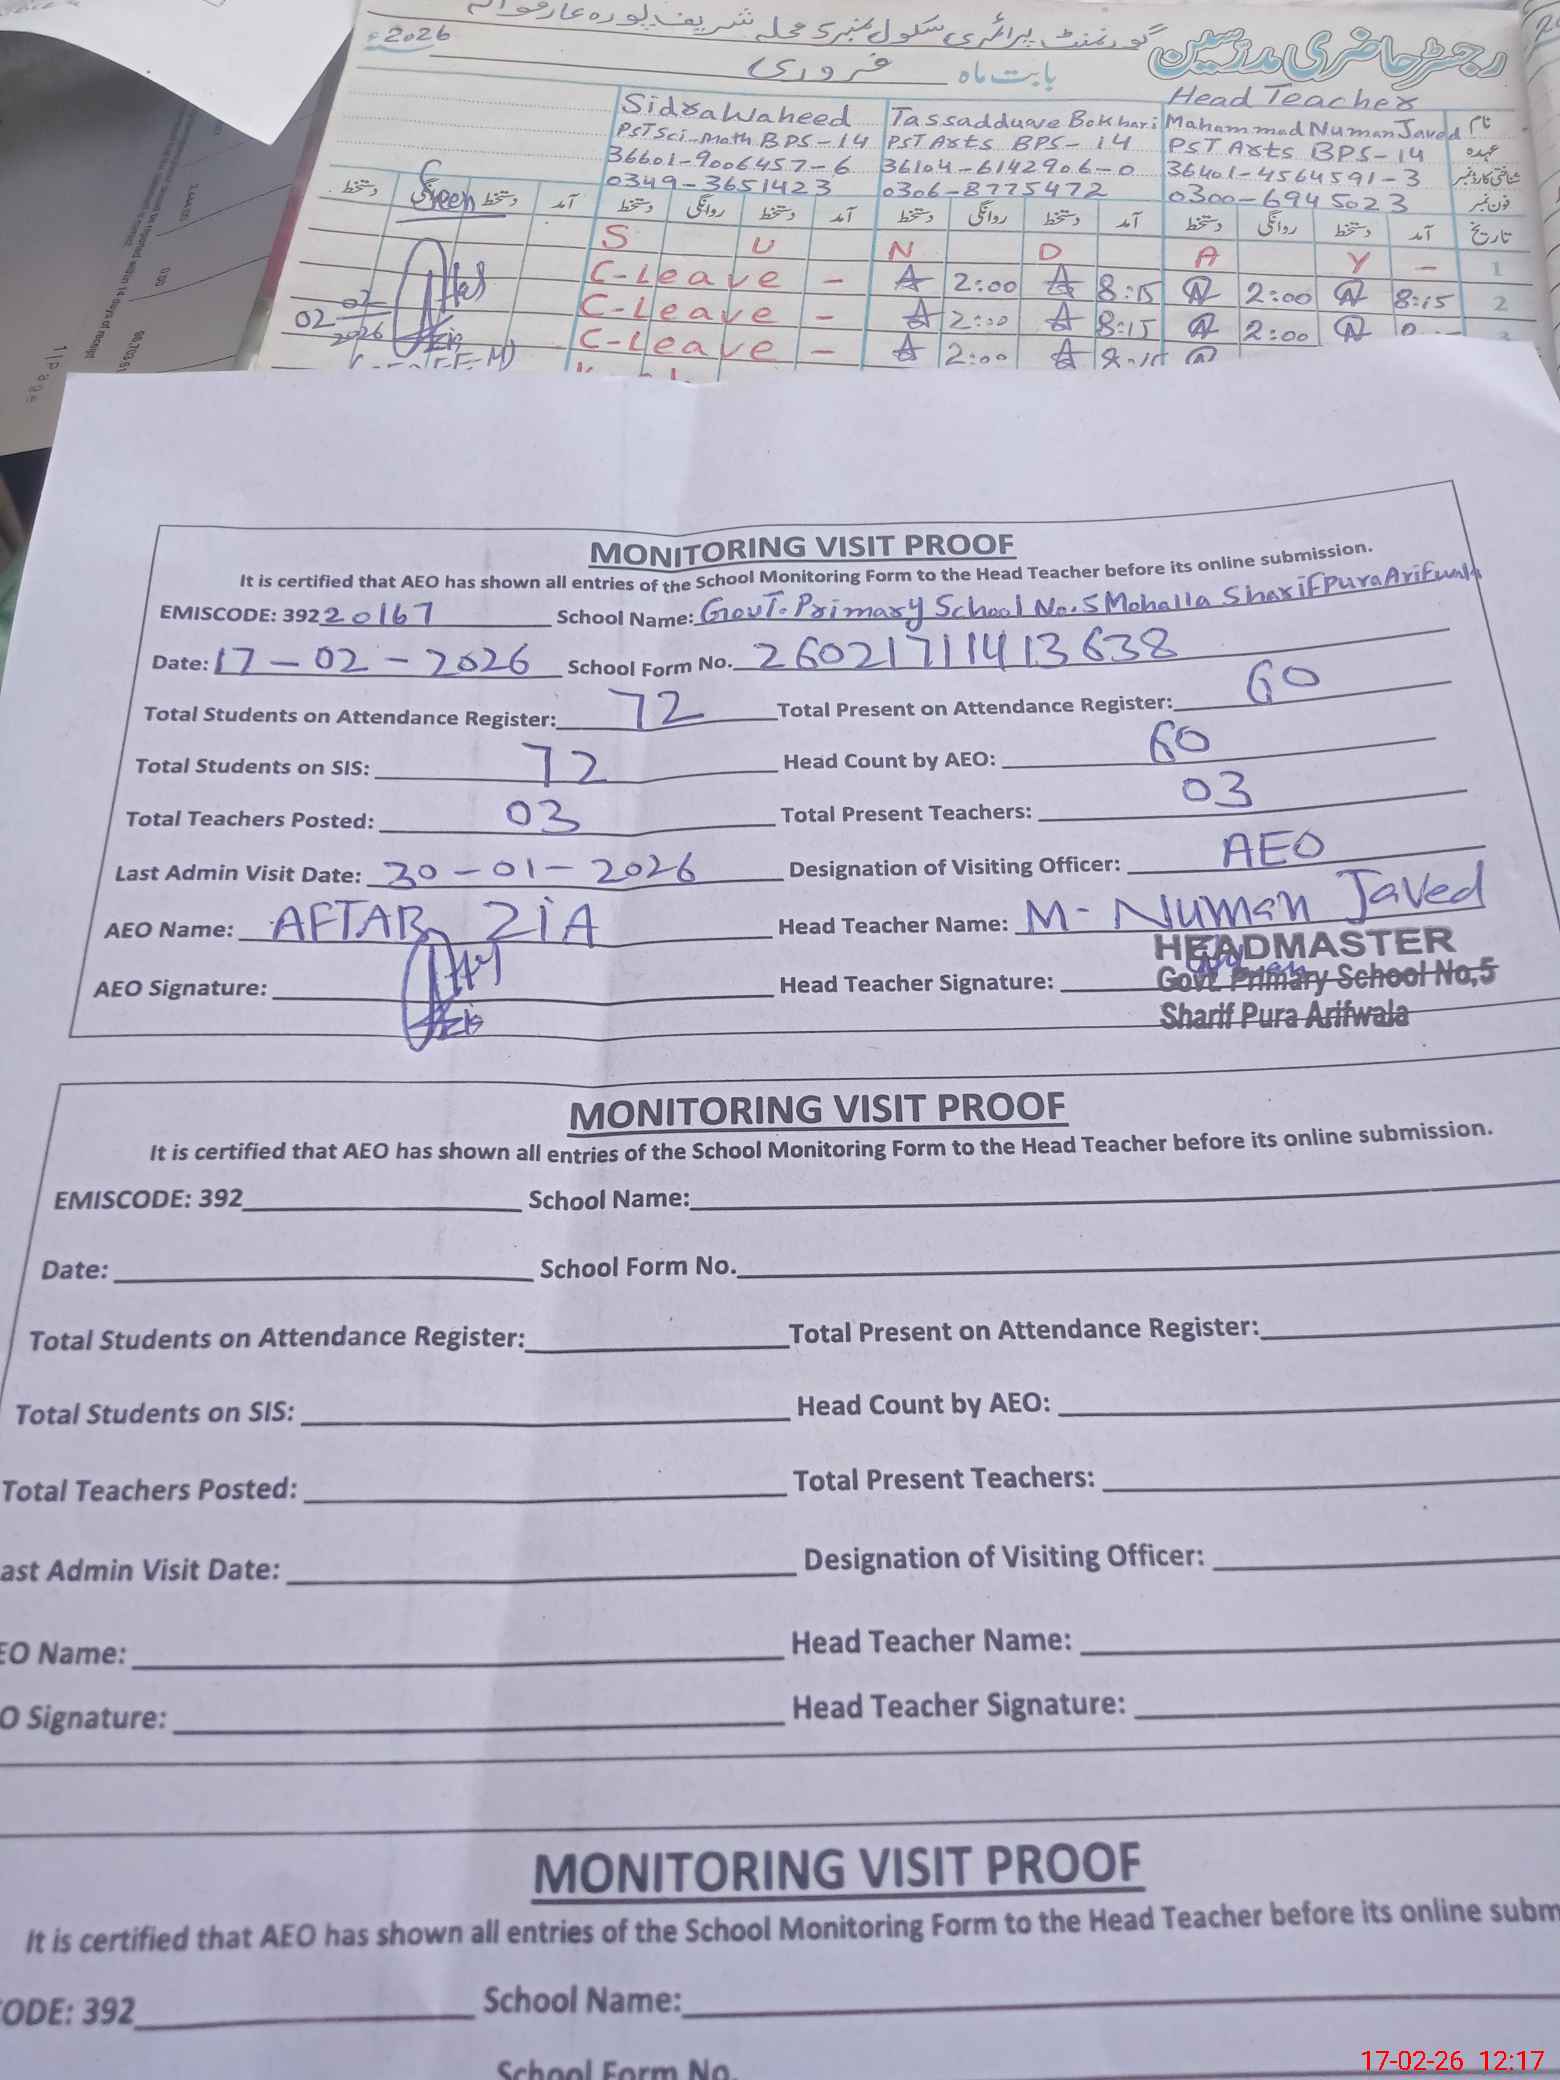 گورنمنٹ پرائمری سکول نمبر 5 محلہ شریف پورہ عارفوالہ
2026ء
رجسٹر حاضری مدرسین
بابت ماہ فروری
Head Teacher
Sidra Waheed Tassadduave Bokhari Mahammad Numan Javed نام
PST Sci-Math BPS-14 PST Arts BPS-14 PST Arts BPS-14 عہدہ
36601-9006457-6 36104-6142906-0 36401-4564591-3 شناختی کارڈ نمبر
0349-3651423 0306-8775472 0300-6945023 فون نمبر
Seen
دستخط روانگی دستخط آمد دستخط روانگی دستخط آمد دستخط روانگی دستخط آمد دستخط روانگی دستخط آمد تاریخ
S U N D A Y - 1
C-Leave - 2:00 8:15 2:00 8:15 2
C-Leave - 2:00 8:15 2:00 3
C-Leave - 2:00
02 02 2026
1 | Page
MONITORING VISIT PROOF
It is certified that AEO has shown all entries of the School Monitoring Form to the Head Teacher before its online submission.
EMISCODE: 39220167 School Name: Govt. Primary School No.5 Mohalla Sharif Pura Arifwala
Date: 17-02-2026 School Form No. 26021711413638
Total Students on Attendance Register: 72 Total Present on Attendance Register: 60
Total Students on SIS: 72 Head Count by AEO: 60
Total Teachers Posted: 03 Total Present Teachers: 03
Last Admin Visit Date: 30-01-2026 Designation of Visiting Officer: AEO
AEO Name: AFTAB ZIA Head Teacher Name: M. Numan Javed
AEO Signature: Head Teacher Signature:
HEADMASTER
Govt. Primary School No,5
Sharif Pura Arifwala
MONITORING VISIT PROOF
It is certified that AEO has shown all entries of the School Monitoring Form to the Head Teacher before its online submission.
EMISCODE: 392 School Name:
Date: School Form No.
Total Students on Attendance Register: Total Present on Attendance Register:
Total Students on SIS: Head Count by AEO:
Total Teachers Posted: Total Present Teachers:
ast Admin Visit Date: Designation of Visiting Officer:
EO Name: Head Teacher Name:
O Signature: Head Teacher Signature:
MONITORING VISIT PROOF
It is certified that AEO has shown all entries of the School Monitoring Form to the Head Teacher before its online subm
CODE: 392 School Name:
School Form No.
17-02-26 12:17